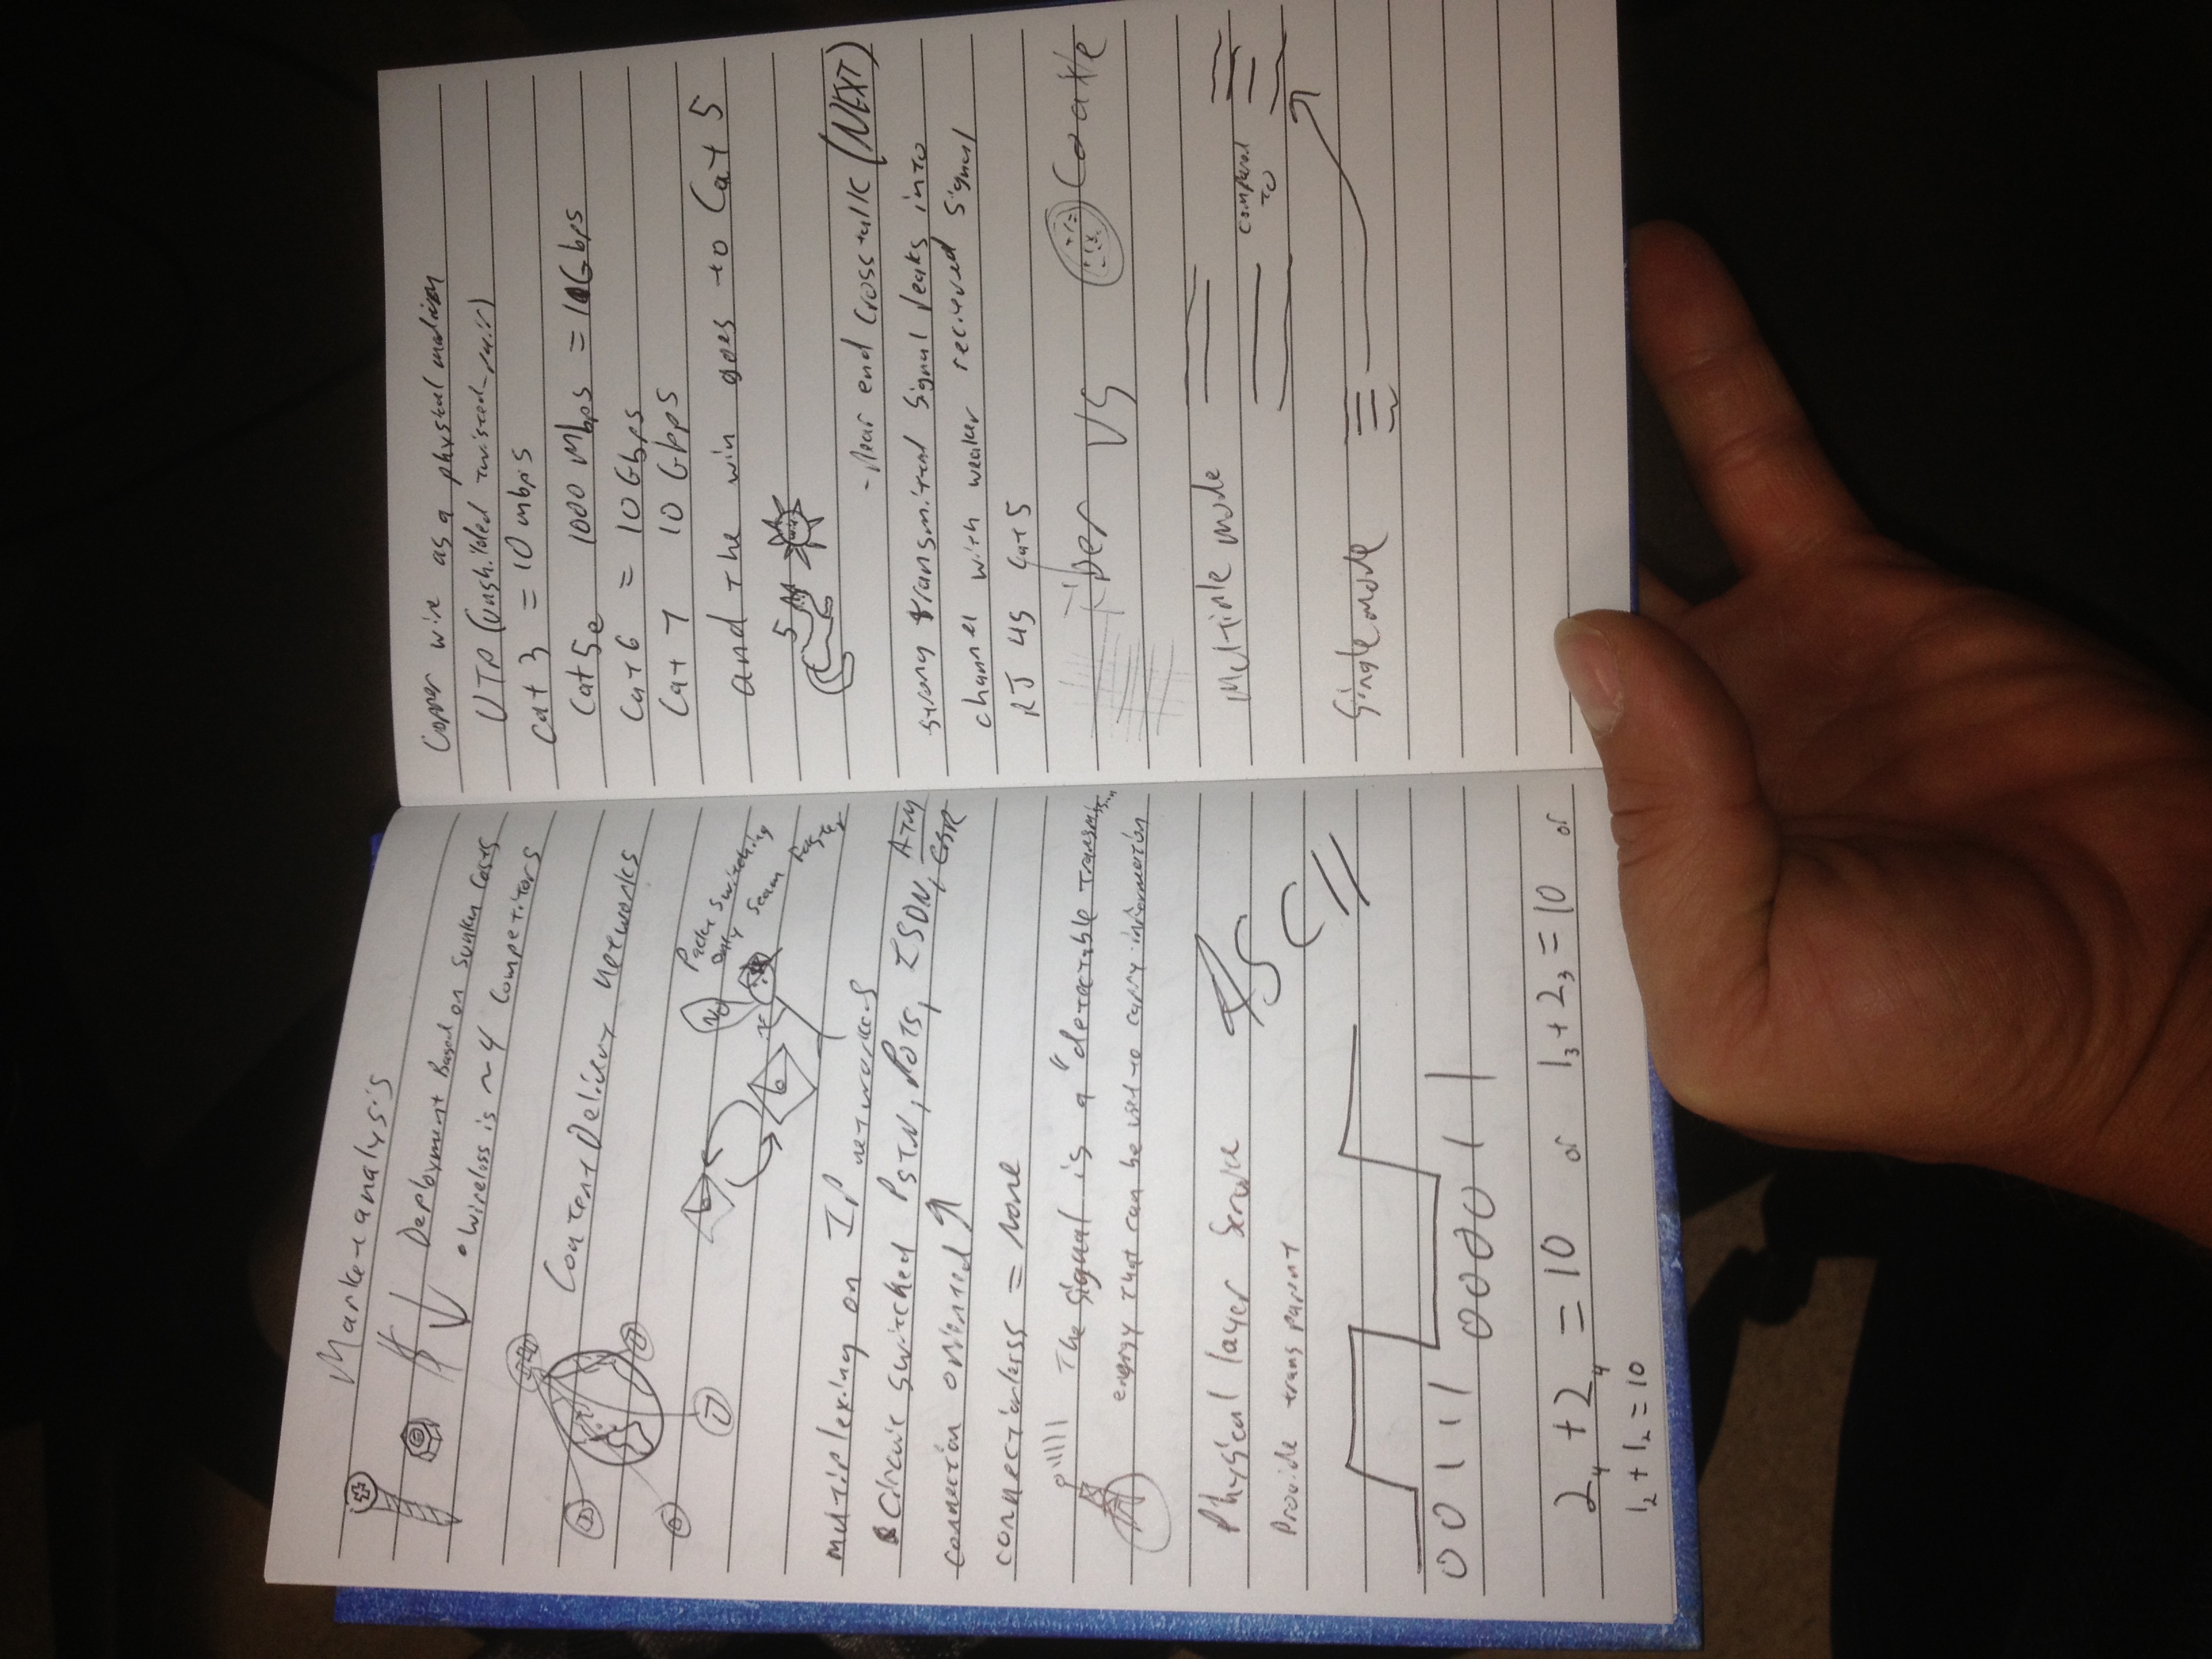 Market analysis
Deployment Based on Sunken Costs
• Wireless is ~4 Competitors
Content Delivery networks
NO
Packet Switching
only seam faster
6
multiplexing on IP networks
Circuit switched PSTN, POTS, ISDN, ATM
connection oriented
connectionless = none
The signal is a "detectable transmission
energy that can be used to carry information
Physical layer Service
Provide transparent
ASCII
0 0 1 1 1 0 0 0 0 1 1
2₄ + 2₄ = 10 or 1₃ + 2₃ = 10 or
1₂ + 1₂ = 10
Copper wire as a physical medium
UTP (unshilded twisted-pair)
Cat 3 = 10 mbps
Cat 5e 1000 Mbps = 1Gbps
Cat 6 = 10 Gbps
Cat 7 10 Gbps
and the win goes to Cat 5
5
win
- Near end crosstalk (NEXT)
strong transmitted signal leaks into
channel with weaker recieved signal
RJ 45 Cat 5
Fiber VS Coaxle
Multiple mode
compared
to
Single mode